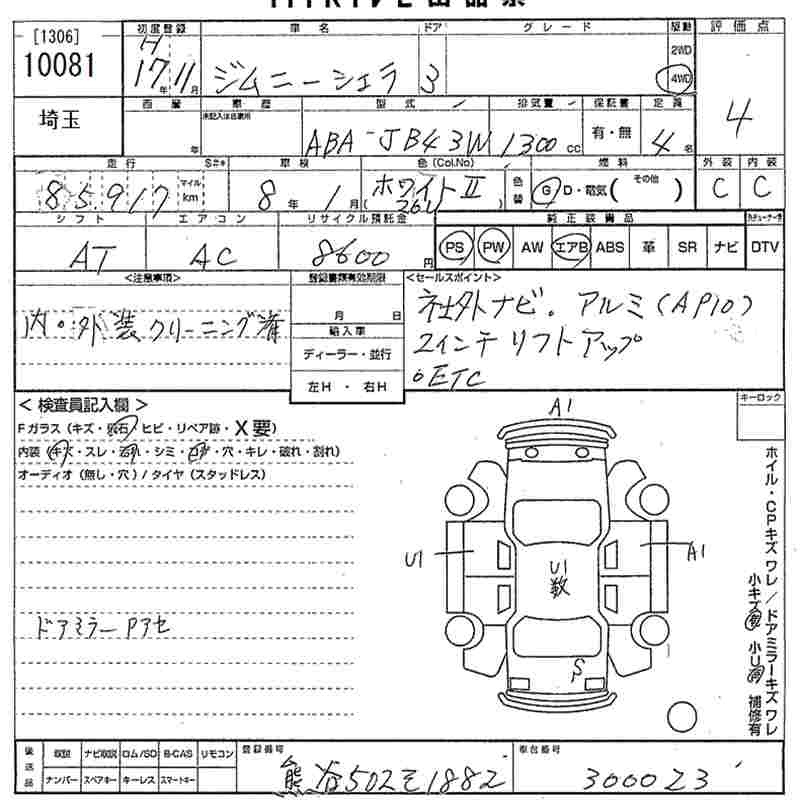 [1306]
10081
埼玉
初度登録
H
17年11月
車名
ジムニーシエラ
ドア
3
グレード
駆動
2WD
4WD
評価点
4
車歴
未記入は自家用
年
型式
ABA-JB43W
排気量
1300cc
保証書
有・無
定員
4名
走行
S#*
85917
マイル
km
車検
8年1月
色(Col.No)
ホワイトⅡ
(26U)
色替
燃料
G D・電気(その他)
外装
C
内装
C
シフト
AT
エアコン
AC
リサイクル預託金
8600円
純正装備品
PS PW AW エアB ABS 革 SR ナビ DTV
<注意事項>
内・外装クリーニング済
登録書類有効期限
月 日
輸入車
ディーラー・並行
左H・右H
<セールスポイント>
社外ナビ。アルミ(AP10)
2インチリフトアップ
。ETC
<検査員記入欄>
Fガラス(キズ・飛石・ヒビ・リペア跡・X要)
内装(キズ・スレ・汚れ・シミ・コゲ・穴・キレ・破れ・割れ)
オーディオ(無し・穴)/タイヤ(スタッドレス)
ドアミラーPアセ
A1
U1
A1
U1
数
S
キーロック
ホイル・CPキズワレ/ドアミラーキズワレ
小キズ有 小U有 補修有
後送品
取説 ナビ取説 ロム/SD B-CAS リモコン
ナンバー スペアキー キーレス スマートキー
登録番号
熊谷502そ1882
車台番号
300023